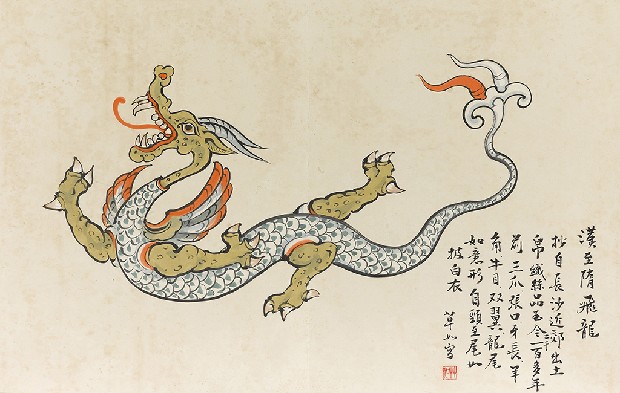 漢至隋飛龍
抄自長沙近郊出土
帛織絲品至今二千一百多年
前三爪張口牙長羊
角牛目双翼龍尾
如意形自頸至尾如
披白衣
草如寫